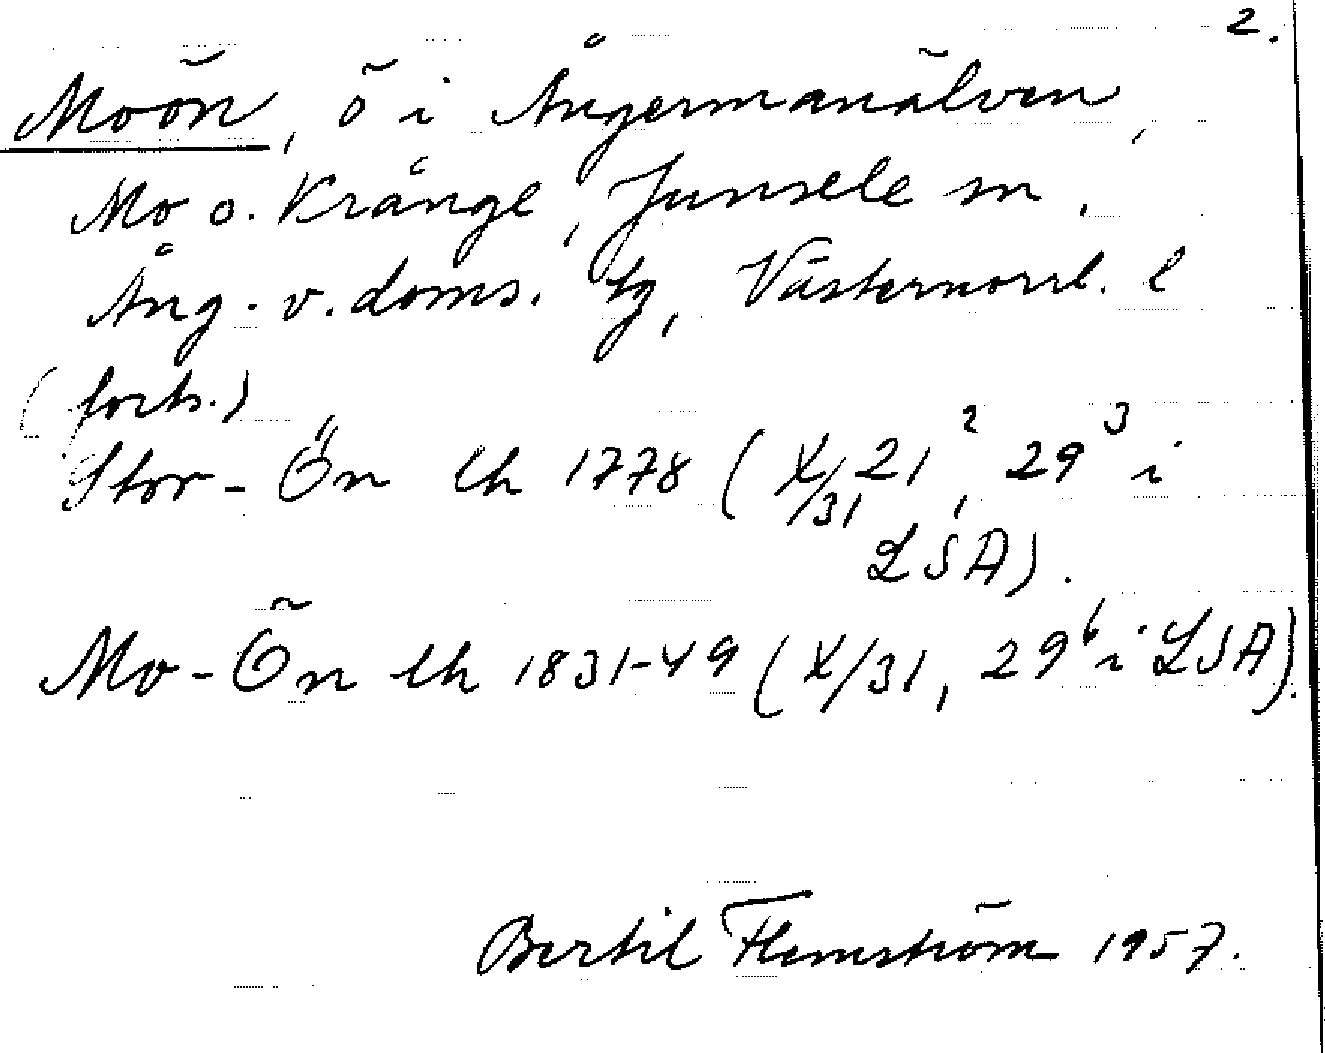 2.
Moön, ö i Ångermanälven,
Mo o. Krånge, Junsele sn,
Ång. v. doms. tg, Västernorrl. l
(forts.)
Stor-Ön lh 1778 (X/31, 21², 29³ i
LSA).
Mo-Ön lh 1831-49 (X/31, 29⁶ i LSA).
Bertil Flemström 1957.